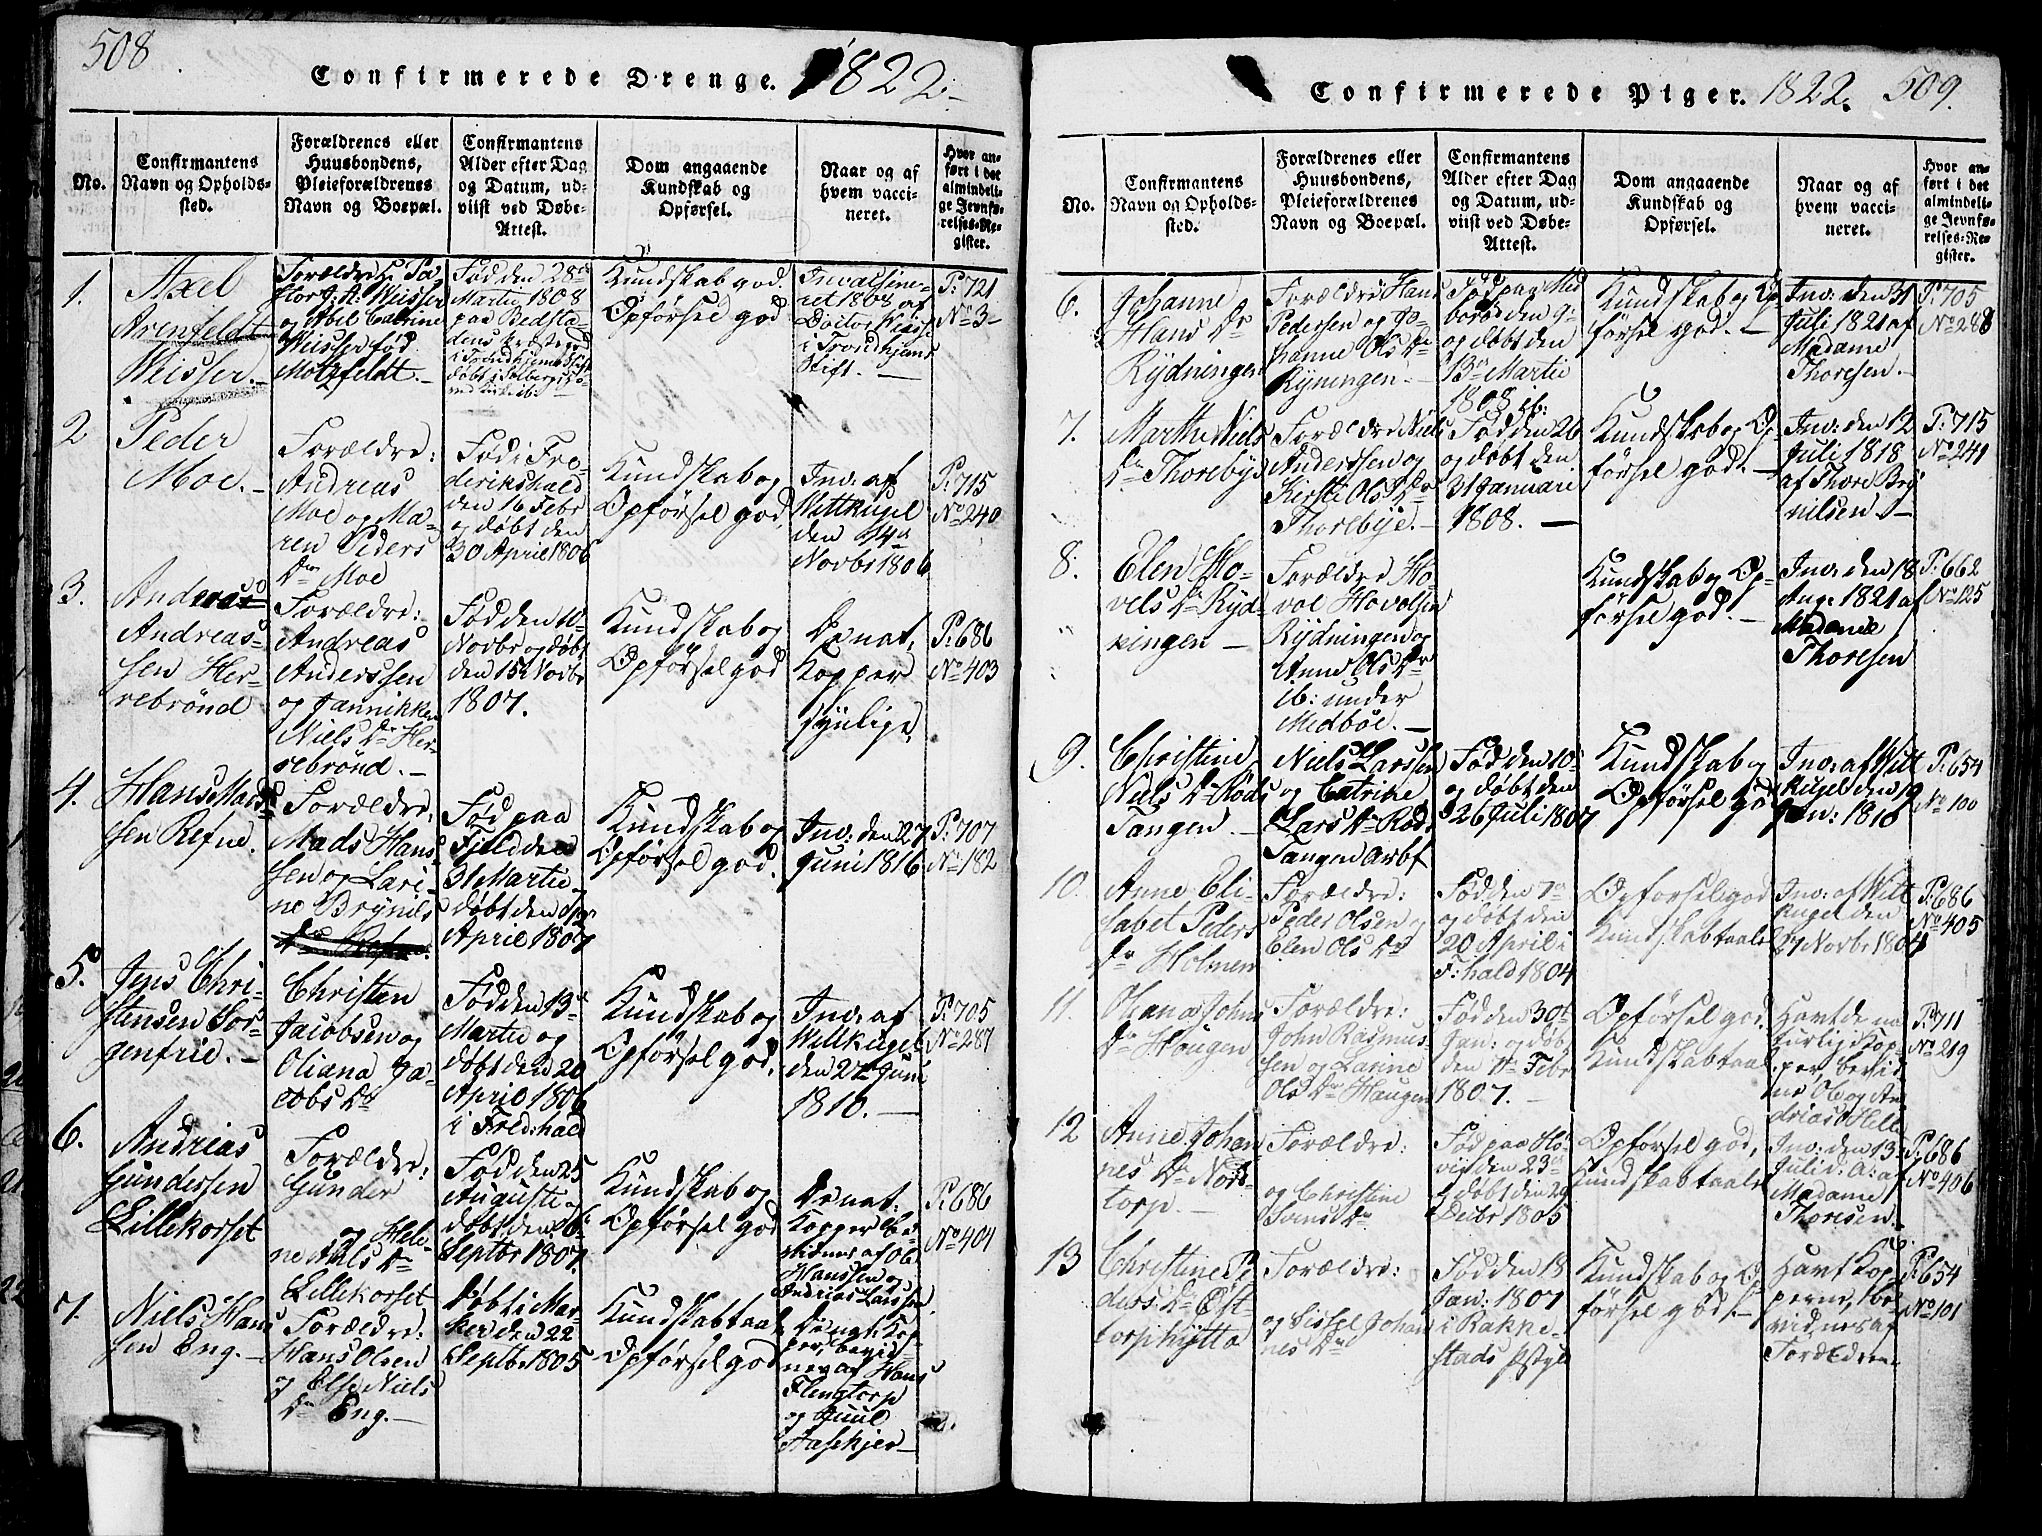 508
Confirmerede Drenge. 1822.
No.
Confirmantens
Navn og Opholds-
sted.
Forældrenes eller
Huusbondens,
Pleieforældrenes
Navn og Boepæl.
Confirmantens
Alder efter Dag
og Datum, ud-
viist ved Døbe-
Attest.
Dom angaaende
Kundskab og
Opførsel.
Naar og af
hvem vacci-
neret.
Hvor an-
ført i det
almindeli-
ge Jevnfø-
relses-Re-
gister.
1.
Axel
Arenfeldt
Weisser.
og Abel Catrine
Weisser fød
Motzfeldt.
Fød den 28de
Martii 1808
paa Bedsta-
Kundskab god.
Opførsel god
ret 1808 af
Doctor
i Trondhjems
Stift.
P: 721
No 3
2
Peder
Moe.
Forældre:
Andreas
Moe og Ma-
ren Peders
Dr Moe
Fød i Fre-
derikshald
den 16 Febr
og døbt den
30 April 1806
Kundskab og
Opførsel god.
Inv: af
Wittkugel
den 14d
Novbr 1806
P: 715
No 240
3.
Andreas
Andreas-
sen Her-
rebrönd
Forældre:
Andreas
Anderssen
og Jannikken
Niels Dr Her-
rebrönd.
Fød den 10
Novbr og døbt
den 15de Novbr
1807.
Kundskab og
Opførsel god
De nat.
Kopper
synlige.
P: 686
No 403
4.
Hans Mads-
sen Refne.
Forældre:
Mads Hans-
sen og Lari-
ne Brÿnils
Fød paa
Field den
31 Martii
døbt den
April 1807
Kundskab og
Opførsel god.
Inv: den 27
Juni 1816
P: 707
No 182
5.
Jens Chri-
stensen Sor-
genfrie.
Christen
Jacobsen og
Oliana Ja-
cobs Dr
Fød den 13de
Martii og
døbt den 20
April 1806
i Fredshald
Kundskab og
Opførsel god.
Inv: af
Wittkugel
den 22 Juni
1810.
P: 705
No 287
6.
Andreas
Gundersen
Lillekorset
Forældre:
Gunder
og Hele-
ne Niels Dr
Lillekorset
Fød den 25
Augusti
døbt den 6te
Septbr 1807
Kundskab og
Opførsel god
De nat:
Kopper be-
vidnes af Ole
Hanssen og
Andreas Larssen
P: 686
No 404
7.
Niels Hans
sen Eng.
Forældre:
Hans Olsen
og Else Niels
Dr Eng.
Døbt i Mar-
ker den 22
Septbr 1805
Kundskab taal
Opførsel god
De nat: Kop-
per, bevid-
nes af Hans
Flengtorp
og Juul
Aaskjer
Confirmerede Piger. 1822. 509.
No.
Confirmantens
Navn og Opholds-
sted.
Forældrenes eller
Huusbondens,
Pleieforældrenes
Navn og Boepæl.
Confirmantens
Alder efter Dag
og Datum, ud-
viist ved Døbe-
Attest.
Dom angaaende
Kundskab og
Opførsel.
Naar og af
hvem vacci-
neret.
Hvor an-
ført i det
almindeli-
ge Jevnfø-
relses-Re-
gister.
6.
Johanne
Hans Dr
Rÿdningen
Forældre Hans
Pedersen og Jo-
hanne Ols Dr
Rÿningen.
Fød paa Med
boe den 9
og døbt den
13de Martii
1808
Kundskab og Op-
førsel god.
Inv: den 31
Juli 1821 af
Madame
Thoresen.
P: 705
No 288
7.
Marthe Niels
Dr Thorebÿe
Forældre Niels
Anderssen og
Kirsti Ols Dr
Thorebÿe.
Fød den 26
og døbt den
31 Januari
1808.
Kundskab og Op-
førsel god.
Inv: den 12
Juli 1818
af Thore Brÿ-
nilsen
P: 715
No 241
8.
Elen Ho-
vels Dr Rÿd-
ningen
Forældre Ho-
vel Hovelsen
Rÿdningen og
Anne Ols Dr
ib: under
Medböe.
Kundskab og Op-
førsel god.
Inv: den 18
Aug: 1821 af
Madame
Thoresen
P: 662
No 125
9.
Christine
Niels Dr Röds
Tangen
Niels Larssen
og Catrine
Lars Dr Röds
Tangen Arbf
Fød den 10
og døbt den
26 Juli 1807
Kundskab og
Opførsel god
Inv: af Witt
kugel den 19
Jan: 1810
P: 654
No 100
10.
Anne Eli-
sabet Peders
Dr Holmen
Forældre:
Peder Olsen og
Elen Ols Dr
Fød den 7de
og døbt den
20 April i
F: hald 1804
Opførsel god
Kundskab taal
Inv: af Witt
kugel den
27 Novbr 1804
P: 686
No 405
11.
Oliana Johns
Dr Haugen
Forældre:
John Rasmus-
sen og Larine
Ols Dr Haugen
Fød den 30t
Jan: og døbt
den 11te Febr
1807.
Opførsel god.
Kundskab taal
Havt de na
turlige Kop-
per, bevid-
nes Ole og An
dreas
P: 711
No 219
12
Anne Johan
nes Dr Nord-
torp.
Forældre:
og Christine
Svens Dr
Fød paa Hö-
vig den 23de
døbt den 29
Decbr 1805
Opførsel god,
Kundskab taal
Inv: den 13
Juli d: A: af
Madame
Thoresen
P: 686
No 406
13
Christine Pe
ders Dr Öst-
torphÿtta
Forældre:
og Sissel Johan
nes Dr
Fød den 18
Jan: 1807
i Rakke-
stads Pstgd
Kundskab og Op
førsel god.
Havt Kop
perne, be-
vidnes af
Forældrene
P: 654
No 101